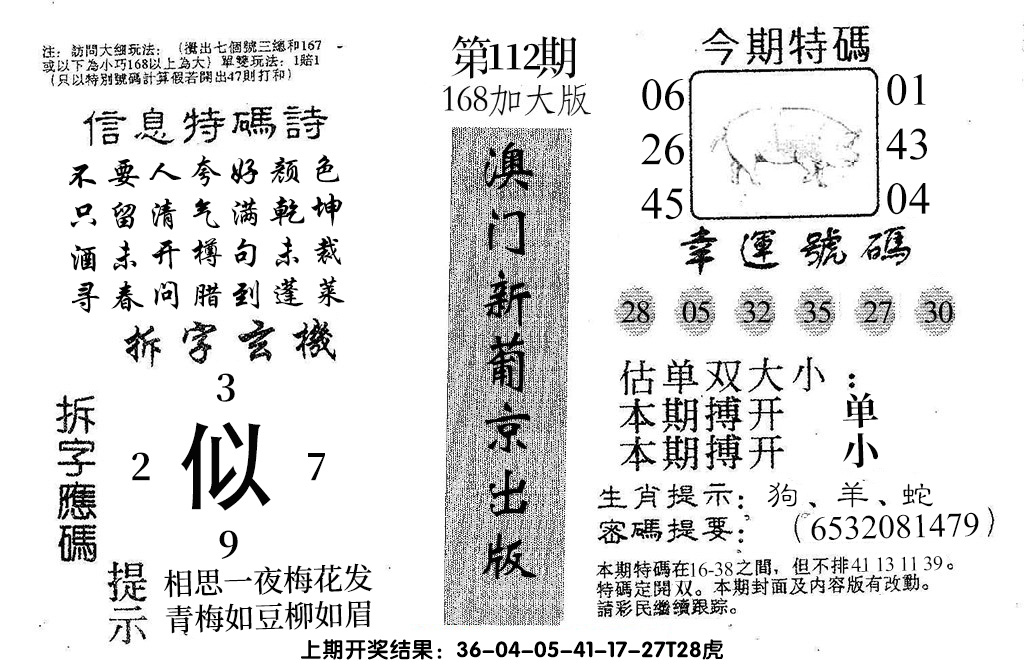 注：訪問大细玩法：（攪出七個號三總和167
或以下為小巧168以上為大）單雙玩法：1賠1
（只以特別號碼計算假若開出47則打和）
信息特碼詩
不要人夸好颜色
只留清气满乾坤
酒未开樽句未裁
寻春问腊到蓬莱
拆字玄機
拆字應碼
3
2 似 7
9
提示
相思一夜梅花发
青梅如豆柳如眉
第112期
168加大版
澳门新葡京出版
今期特碼
06 01
26 43
45 04
幸運號碼
28 05 32 35 27 30
估单双大小：
本期搏开 单
本期搏开 小
生肖提示：狗、羊、蛇
密碼提要：（6532081479）
本期特碼在16-38之間，但不排41 13 11 39。
特碼定開双。本期封面及内容版有改動。
請彩民繼續跟踪。
上期开奖结果：36-04-05-41-17-27T28虎